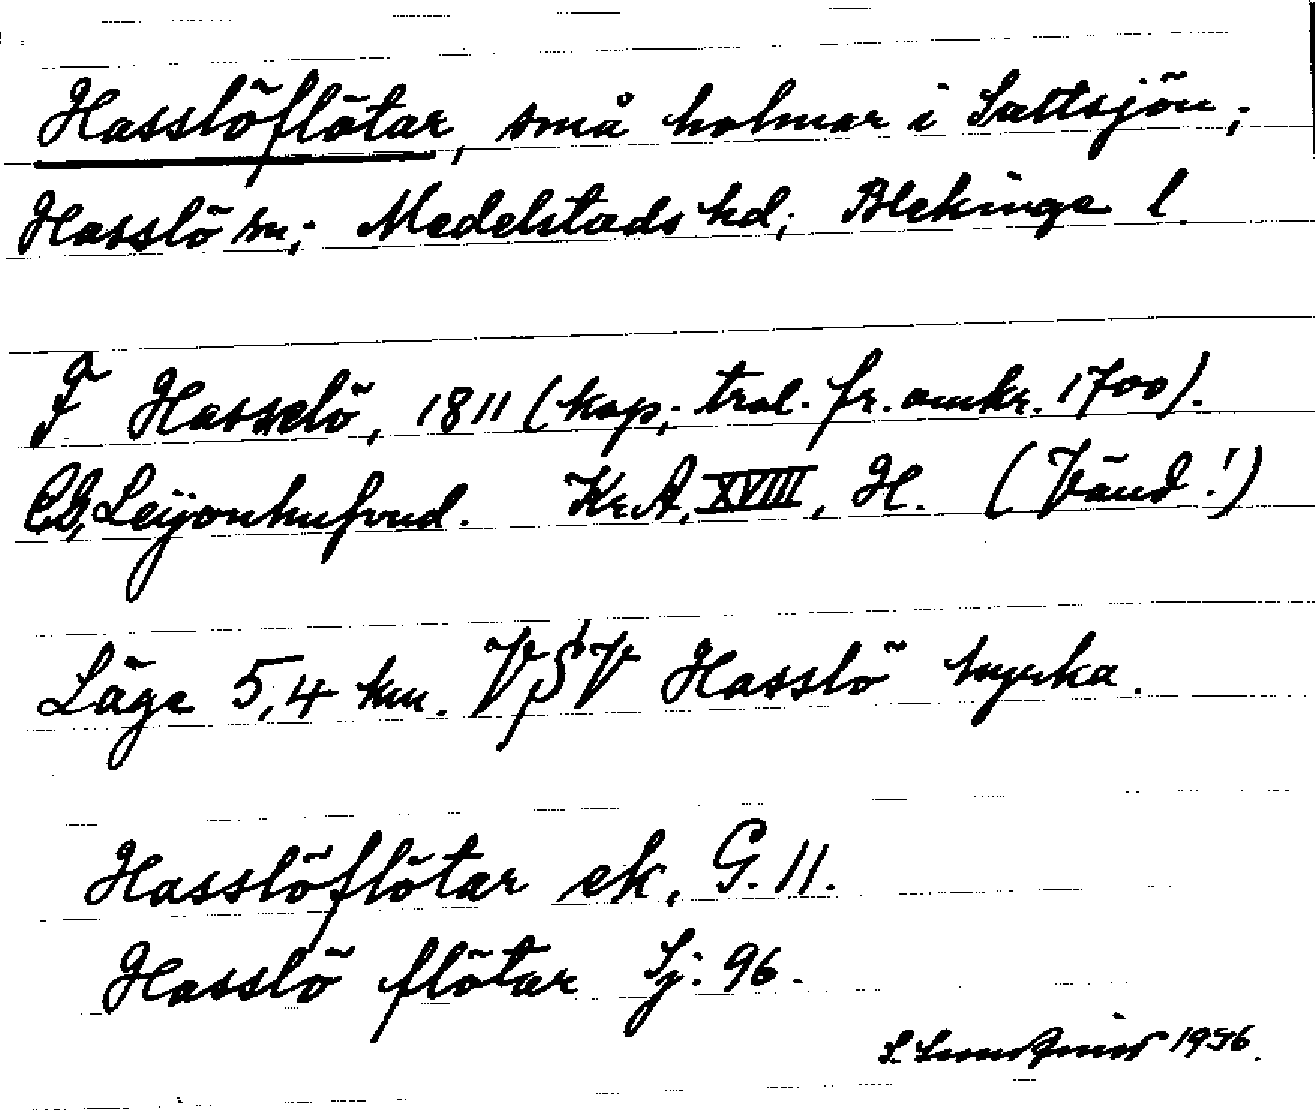 Hasslöflötar, små holmar i Saltsjön;
Hasslö sn; Medelstads hd; Blekinge l.
F Hasselö, 1811 (kop, trol. fr. omkr. 1700).
CG, Leijonhufvud. KrA, XVIII, H. (Vänd!)
Läge 5,4 km. VSV Hasslö kyrka.
Hasslöflötar ek. G. 11.
Hasslö flötar Sj: 96.
1956.